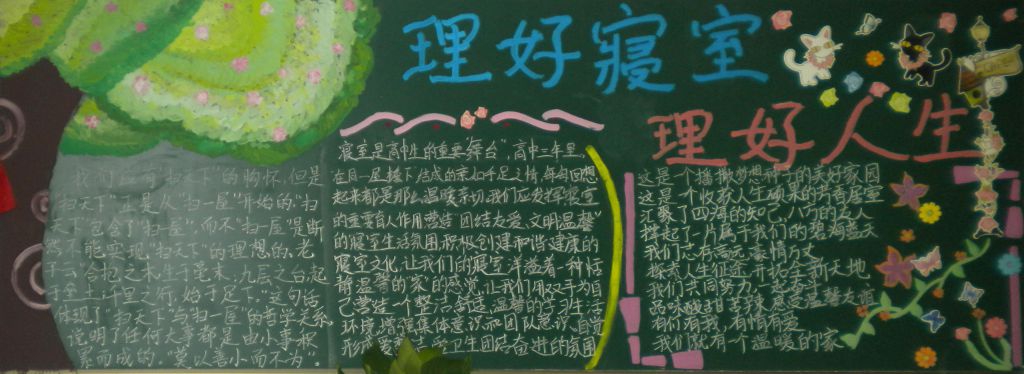 理好寝室
理好人生
我们应有"扫天下"的胸怀,但是
"扫天下"正是从"扫一屋"开始的"扫
天下"包含了"扫一屋",而不"扫一屋"是断
然不能实现"扫天下"的理想的。老
子云"合抱之木,生于毫末,九层之台,起
于垒土,千里之行,始于足下。"这句话
体现了"扫天下"与"扫一屋"的哲学关系
说明了任何大事都是由小事积
累而成的"莫以善小而不为"。
寝室是高中生的重要"舞台",高中三年里,
在同一屋檐下结成的亲如手足之情,每每回想
起来都是那么温暖亲切,我们应发挥寝室
的重要育人作用营造"团结友爱、文明温馨"
的寝室生活氛围,积极创建和谐健康的
寝室文化,让我们的寝室洋溢着一种恬
静温馨的"家"的感觉,让我们用双手为自
己营造一个整洁、舒适、温馨的学习生活
环境,增强集体意识和团队意识,自觉
形成爱清洁、爱卫生团结奋进的氛围
这是个播撒梦想种子的美好家园
这是一个收获人生硕果的书香居室
汇聚了四海的知己,八方的友人
撑起了一片属于我们的碧海蓝天
我们志存高远,豪情万丈
探索人生征途,开拓全新天地
我们共同努力,一起奋斗
品味酸甜苦辣,感受温馨友谊
有你有我,有情有爱
我们就有个温暖的家